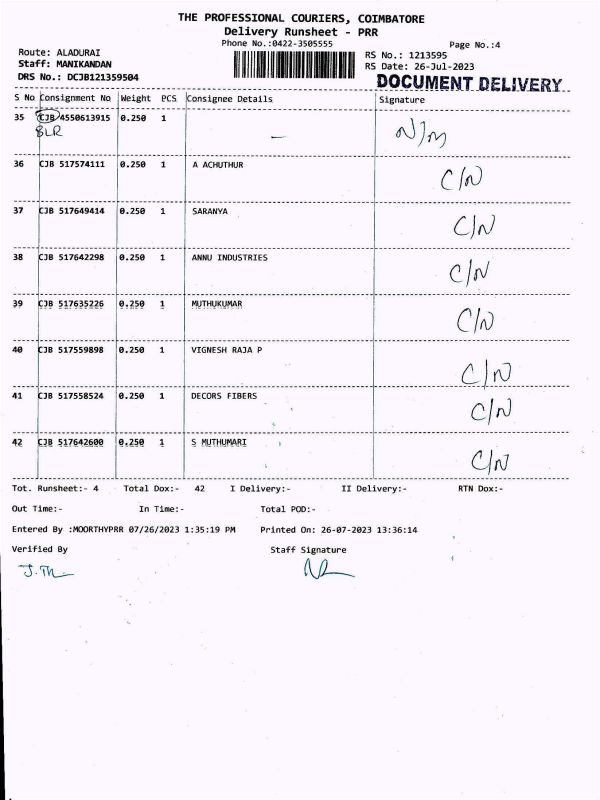 THE PROFESSIONAL COURIERS, COIMBATORE
Delivery Runsheet - PRR
Phone No.:0422-3505555
Page No.:4
Route: ALADURAI
RS No.: 1213595
Staff: MANIKANDAN
RS Date: 26-Jul-2023
DRS No.: DCJB121359504
DOCUMENT DELIVERY
S No Consignment No Weight PCS Consignee Details Signature
35 CJB 4550613915 0.250 1 - N/m
BLR
36 CJB 517574111 0.250 1 A ACHUTHUR C/N
37 CJB 517649414 0.250 1 SARANYA C/N
38 CJB 517642298 0.250 1 ANNU INDUSTRIES C/N
39 CJB 517635226 0.250 1 MUTHUKUMAR C/N
40 CJB 517559898 0.250 1 VIGNESH RAJA P C/N
41 CJB 517558524 0.250 1 DECORS FIBERS C/N
42 CJB 517642600 0.250 1 S MUTHUMARI C/N
Tot. Runsheet:- 4 Total Dox:- 42 I Delivery:- II Delivery:- RTN Dox:-
Out Time:- In Time:- Total POD:-
Entered By :MOORTHYPRR 07/26/2023 1:35:19 PM Printed On: 26-07-2023 13:36:14
Verified By Staff Signature